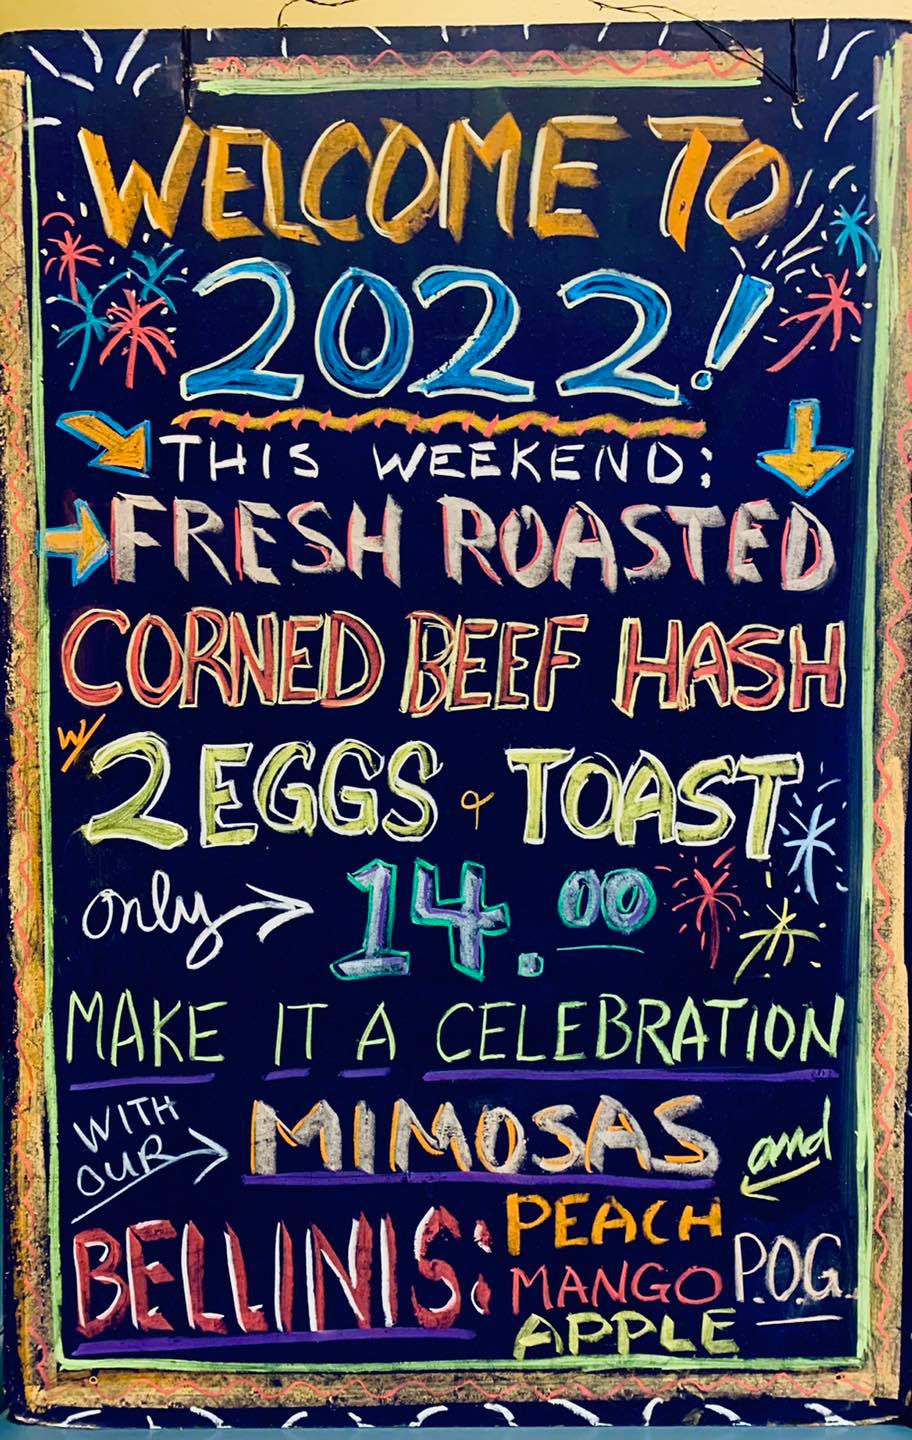 WELCOME TO
2022!
THIS WEEKEND:
FRESH ROASTED
CORNED BEEF HASH
w/ 2 EGGS & TOAST
only 14.00
MAKE IT A CELEBRATION
WITH OUR MIMOSAS and
BELLINIS: PEACH
MANGO P.O.G.
APPLE